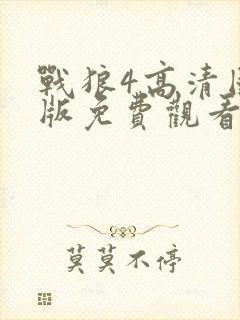 戰狼4高清
版免費觀看
莫莫不停